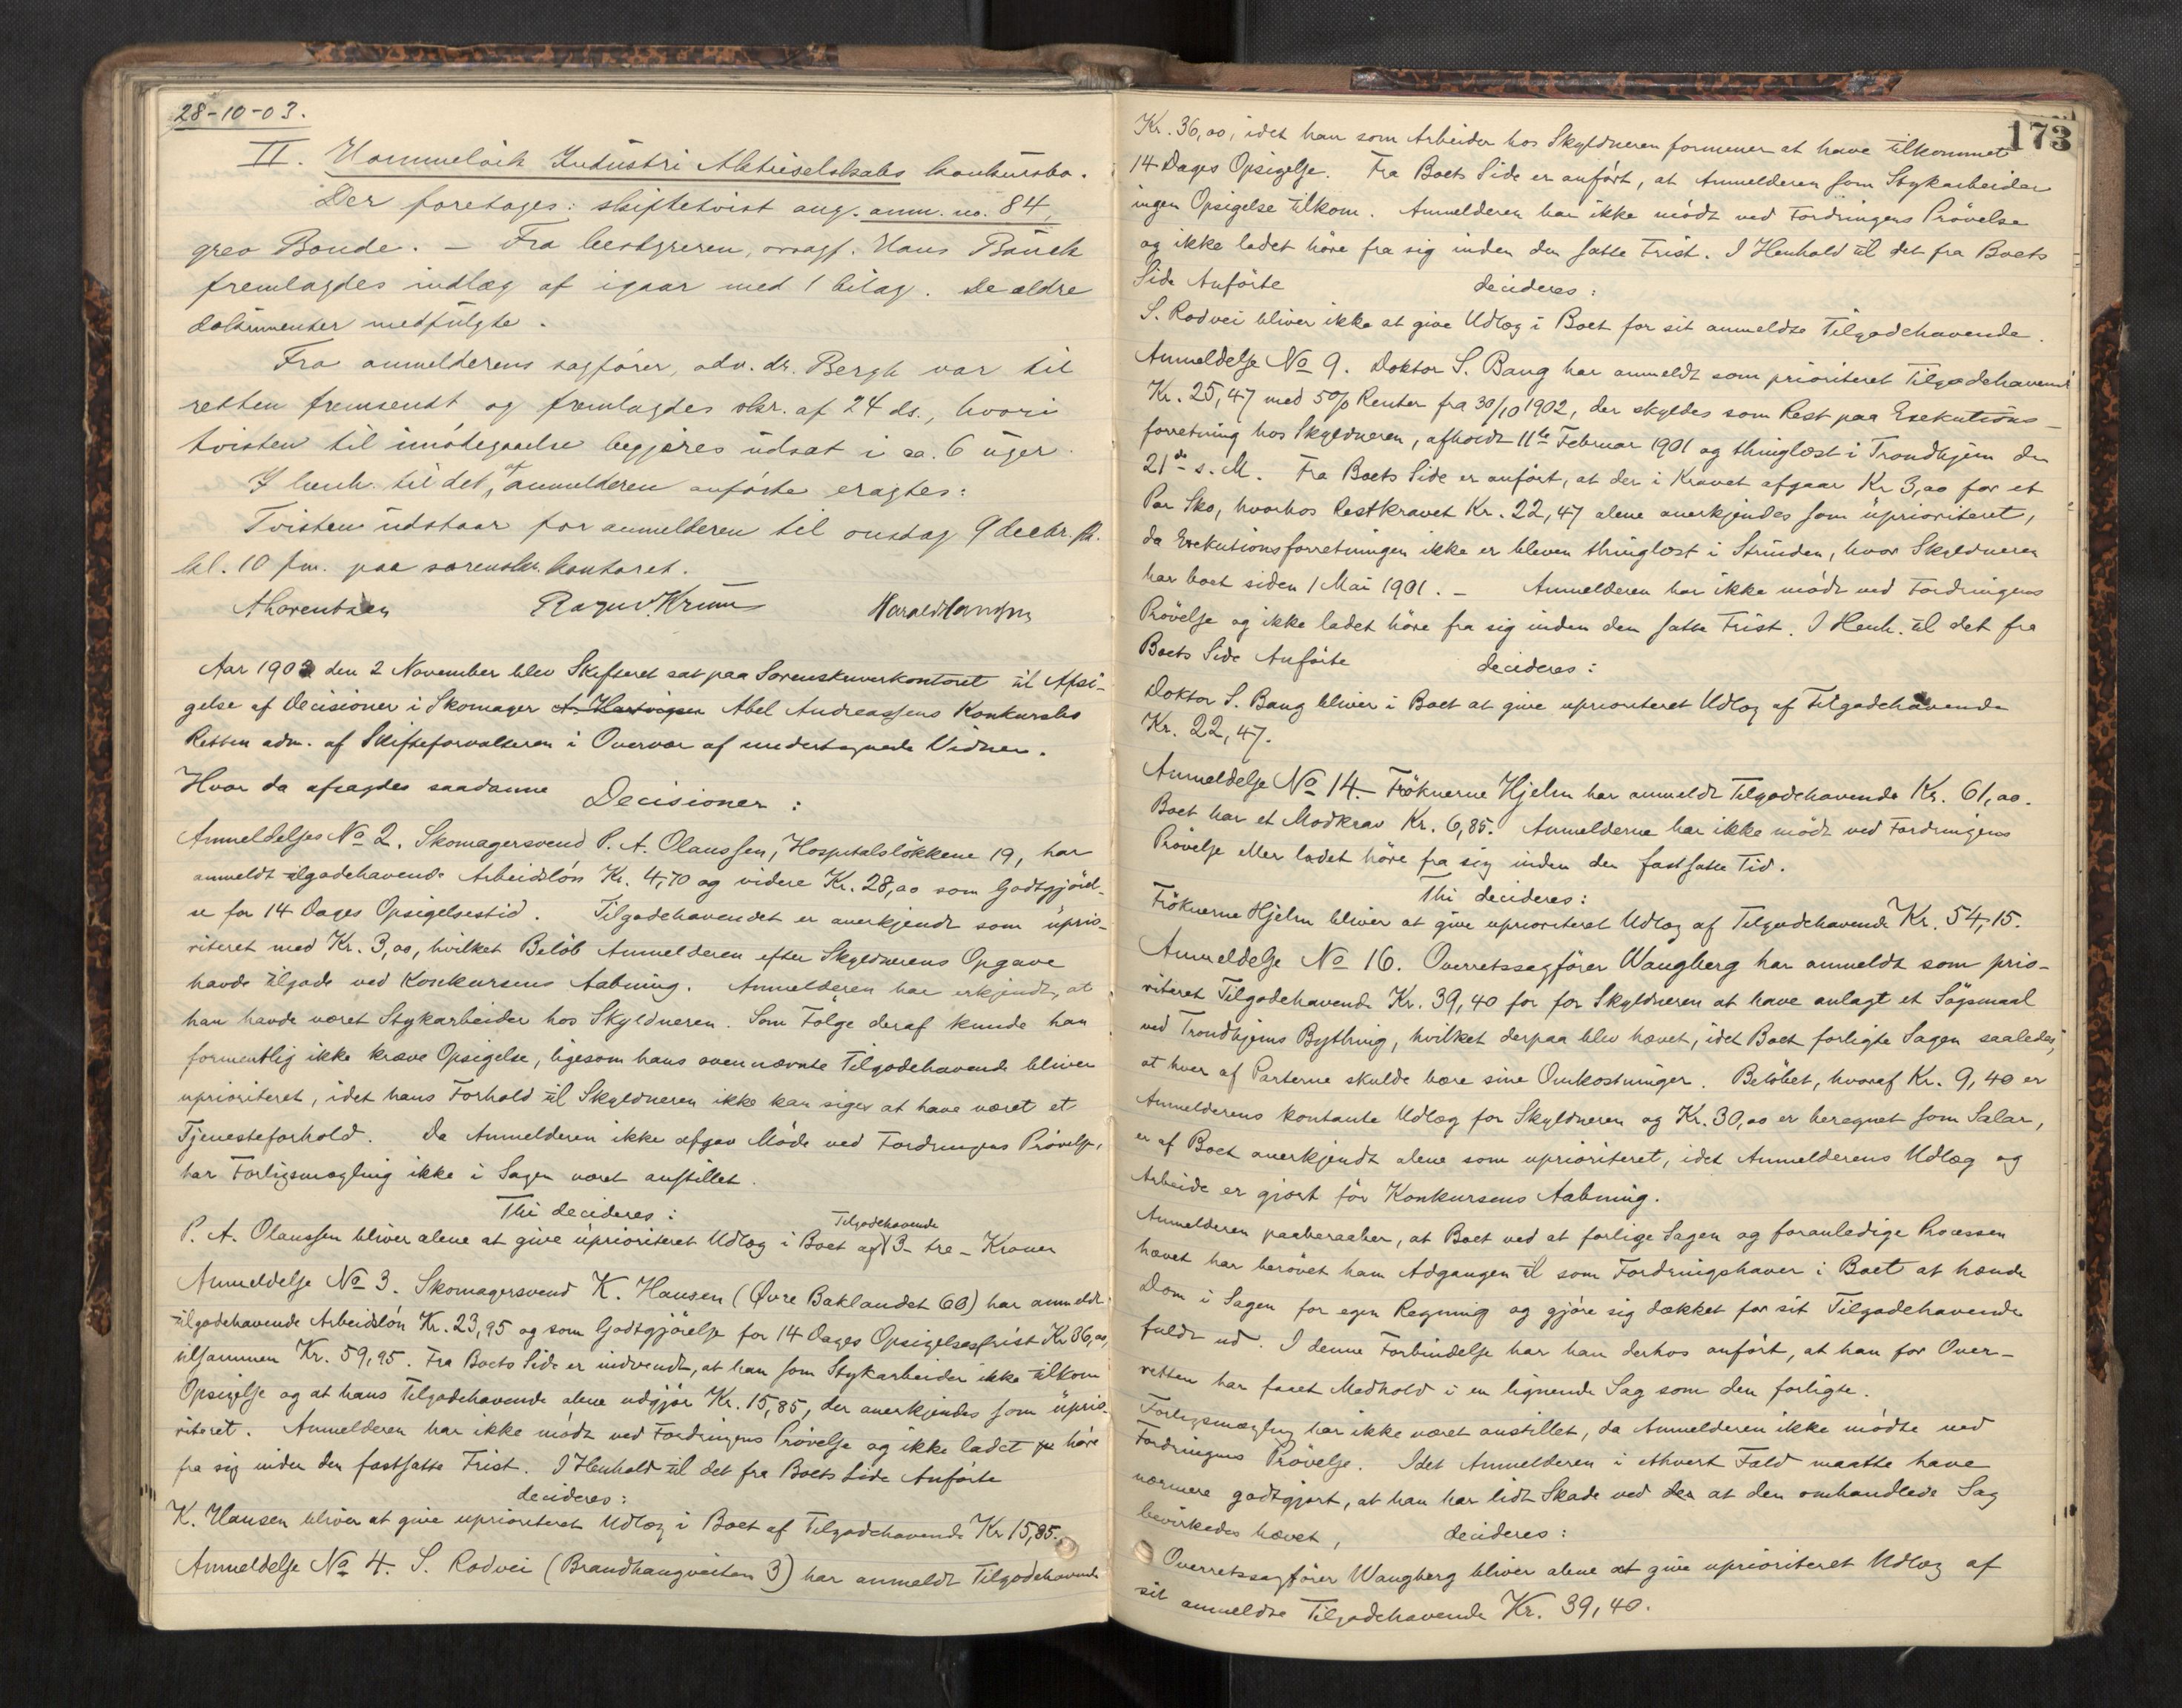 28-10-03.
II. Hommelvik Industri Aktieselskabs konkursbo.
Der foretoges: skiftetvist ang. anm. no. 84,
grev Bonde. – Fra bestyreren, ovragf. Hans Bauck
fremlagdes indlæg af igaar med 1 bilag. De ældre
dokumenter medfulgte.
Fra anmelderens sagfører, adv. dr. Bergh var til
retten fremsendt og fremlagdes skr. af 24 ds., hvori
tvisten til imødegaaelse begjæres udsat i ca. 6 uger.
I henh. til det af anmelderen anførte eragtes:
Tvisten udstaar for anmelderen til onsdag 9 decbr. fk.
kl. 10 fm. paa sorenskr. kontoret.
A Lorentzen Ragnv. Krum Harald Hansen
Aar 1903 den 2 November blev Skifteret sat paa Sorenskriverkontoret til Afsi-
gelse af Decisioner i Skomager A. Hartvigsen Abel Andreassens Konkursbo
Retten adm. af Skifteforvalteren i Overvær af undertegnede Vidner.
Hvor da afsagdes saadanne Decisioner:
Anmeldelses No 2. Skomagersvend P. A. Olaussen, Hospitalsløkkene 19, har
anmeldt tilgodehavende Arbeidsløn Kr. 4,70 og videre Kr. 28,00 som Godtgjørel-
se for 14 Dages Opsigelsestid. Tilgodehavendet er anerkjendt som uprio-
riteret med Kr. 3,00, hvilket Beløb Anmelderen efter Skyldnerens Opgave
havde tilgode ved Konkursens Aabning. Anmelderen har erkjendt, at
han havde været Stykarbeider hos Skyldneren. Som Følge deraf kunde han
formentlig ikke kræve Opsigelse, ligesom hans ovennævnte Tilgodehavende bliver
uprioriteret, idet hans Forhold til Skyldneren ikke kan siges at have været et
Tjenesteforhold. Da Anmelderen ikke afgav Møde ved Fordringens Prøvelse,
har Forligsmægling ikke i Sagen været anstillet.
Thi decideres:
P. A. Olaussen bliver alene at give uprioriteret Udlæg i Boet af Tilgodehavende 3 – tre – Kroner
Anmeldelse No 3. Skomagersvend K. Hansen (Øvre Baklandet 60) har anmeldt
tilgodehavende Arbeidsløn Kr. 23,95 og som Godtgjørelse for 14 Dages Opsigelsesfrist Kr 36,00,
tilsammen Kr. 59,95. Fra Boets Side er indvendt, at han som Stykarbeider ikke tilkom
Opsigelse og at hans Tilgodehavende alene udgjør Kr. 15,85, der anerkjendes som uprio-
riteret. Anmelderen har ikke mødt ved Fordringens Prøvelse og ikke ladet høre
fra sig inden den fastsatte Frist. I Henhold til det fra Boets Side Anførte
decideres:
K. Hansen bliver at give uprioriteret Udlæg i Boet af Tilgodehavende Kr 15,85.
Anmeldelse No 4. S. Rodvei (Brandhaugveiten 3) har anmeldt Tilgodehavende
173
Kr. 36,00, idet han som Arbeider hos Skyldneren formener at have tilkommet
14 Dages Opsigelse. Fra Boets Side er anført, at Anmelderen som Stykarbeider
ingen Opsigelse tilkom. Anmelderen har ikke mødt ved Fordringens Prøvelse
og ikke ladet høre fra sig inden den satte Frist. I Henhold til det fra Boets
Side Anførte decideres:
S. Rodvei bliver ikke at give Udlæg i Boet for sit anmeldte Tilgodehavende.
Anmeldelse No 9. Doktor S. Bang har anmeldt som prioriteret Tilgodehavende
Kr. 25,47 med 5% Renter fra 30/10 1902, der skyldes som Rest paa Exekutions-
forretning hos Skyldneren, afholdt 11te Februar 1901 og thinglæst i Trondhjem den
21de s. M. Fra Boets Side er anført, at der i Kravet afgaar Kr 3,00 for et
Par Sko, hvorhos Restkravet Kr. 22,47 alene anerkjendes som uprioriteret,
da Exekutionsforretningen ikke er bleven thinglæst i Strinden, hvor Skyldneren
har boet siden 1 Mai 1901. – Anmelderen har ikke mødt ved Fordringens
Prøvelse og ikke ladet høre fra sig inden den satte Frist. I Henh. til det fra
Boets Side Anførte decideres:
Doktor S. Bang bliver i Boet at give uprioriteret Udlæg af Tilgodehavende
Kr. 22,47.
Anmeldelse No 14. Frøknerne Hjelm har anmeldt Tilgodehavende Kr. 61,00.
Boet har et Modkrav Kr. 6,85. Anmelderne har ikke mødt ved Fordringens
Prøvelse eller ladet høre fra sig inden den fastsatte Tid.
Thi decideres:
Frøknerne Hjelm bliver at give uprioriteret Udlæg af Tilgodehavende Kr. 54,15.
Anmeldelse No 16. Overretssagfører Wangberg har anmeldt som prio-
riteret Tilgodehavende Kr. 39,40 for for Skyldneren at have anlagt et Søgsmaal
ved Trondhjems Bything, hvilket derpaa blev hævet, idet Boet forligte Sagen saaledes,
at hver af Parterne skulde bære sine Omkostninger. Beløbet, hvoraf Kr. 9,40 er
Anmelderens kontante Udlæg for Skyldneren og Kr. 30,00 er beregnet som Salær,
er af Boet anerkjendt alene som uprioriteret, idet Anmelderens Udlæg og
Arbeide er gjort før Konkursens Aabning.
Anmelderen paaberaaber, at Boet ved at forlige Sagen og foranledige Processen
hævet har berøvet ham Adgangen til som Fordringshaver i Boet at hænde
Dom i Sagen for egen Regning og gjøre sig dækket for sit Tilgodehavende
fuldt ud. I denne Forbindelse har han derhos anført, at han for Over-
retten har faaet Medhold i en lignende Sag som den forligte.
Forligsmægling har ikke været anstillet, da Anmelderen ikke mødte ved
Fordringens Prøvelse. Idet Anmelderen i ethvert Fald maatte have
nærmere godtgjort, at han har lidt Skade ved der at den omhandlede Sag
bevirkedes hævet, decideres:
Overretssagfører Wangberg bliver alene at give uprioriteret Udlæg af
sit anmeldte Tilgodehavende Kr. 39,40.